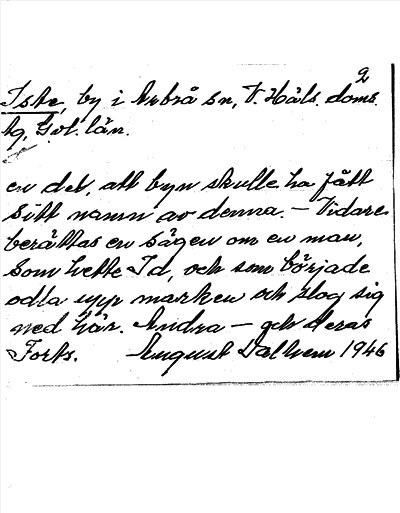 2
Iste, by i Arbrå sn, V. Häls. doms.
tg, Gvl. län.
en del, att byn skulle ha fått
sitt namn av denna. – Vidare
berättas en sägen om en man,
som hette Id, och som började
odla upp marken och slog sig
ned här. Andra – och deras
Forts. August Dalhem 1946